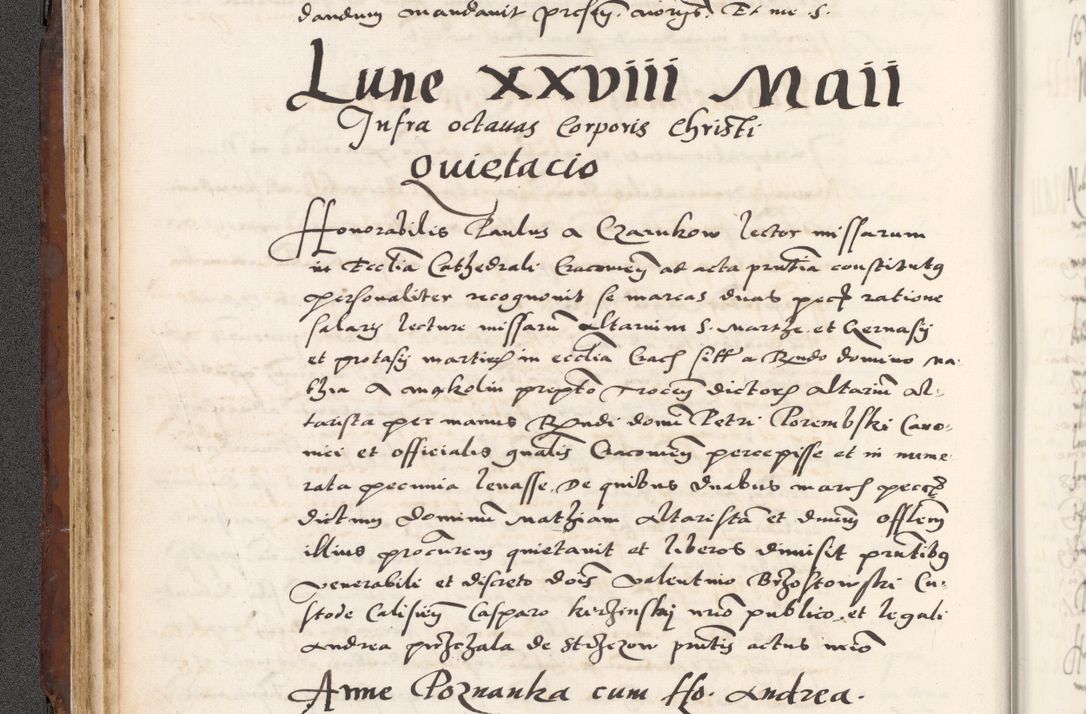 dandum mandavit presen. vigoris. Et me S.
Lune XXVIII Maii
Infra octauas Corporis Christi
Quietacio
Honorabilis Paulus a Czarnkow lector missarum
in Ecclia Cathedrali Cracouien ad acta pntia constitutus
personaliter recognouit se marcas duas pecu ratione
salarij lecture missarum Altarium S. Marthe et Geruasij
et protasij martirum in ecclia Crac sitt a Rndo domino Ma-
thia a preptto Trocen dictorum Altarium al-
tarista per manus Rndi domi Petri Porembski Cano-
nici et officialis gnalis Cracouien percepisse et in nume-
rata pecunia leuasse. De quibus duabus marcis pecue
dictum dominum Mathiam Altaristam et dnum offlem
illius procurem quietauit et liberos dimisit pntibus
venerabili et discreto dois Valentino Brzostowski Cu-
stode Calisien Casparo kirzinskij nrio publico, et legali
Andrea przichala de Strzezow pntis actus nrio
Anne Poznanka cum Ho. Andrea.